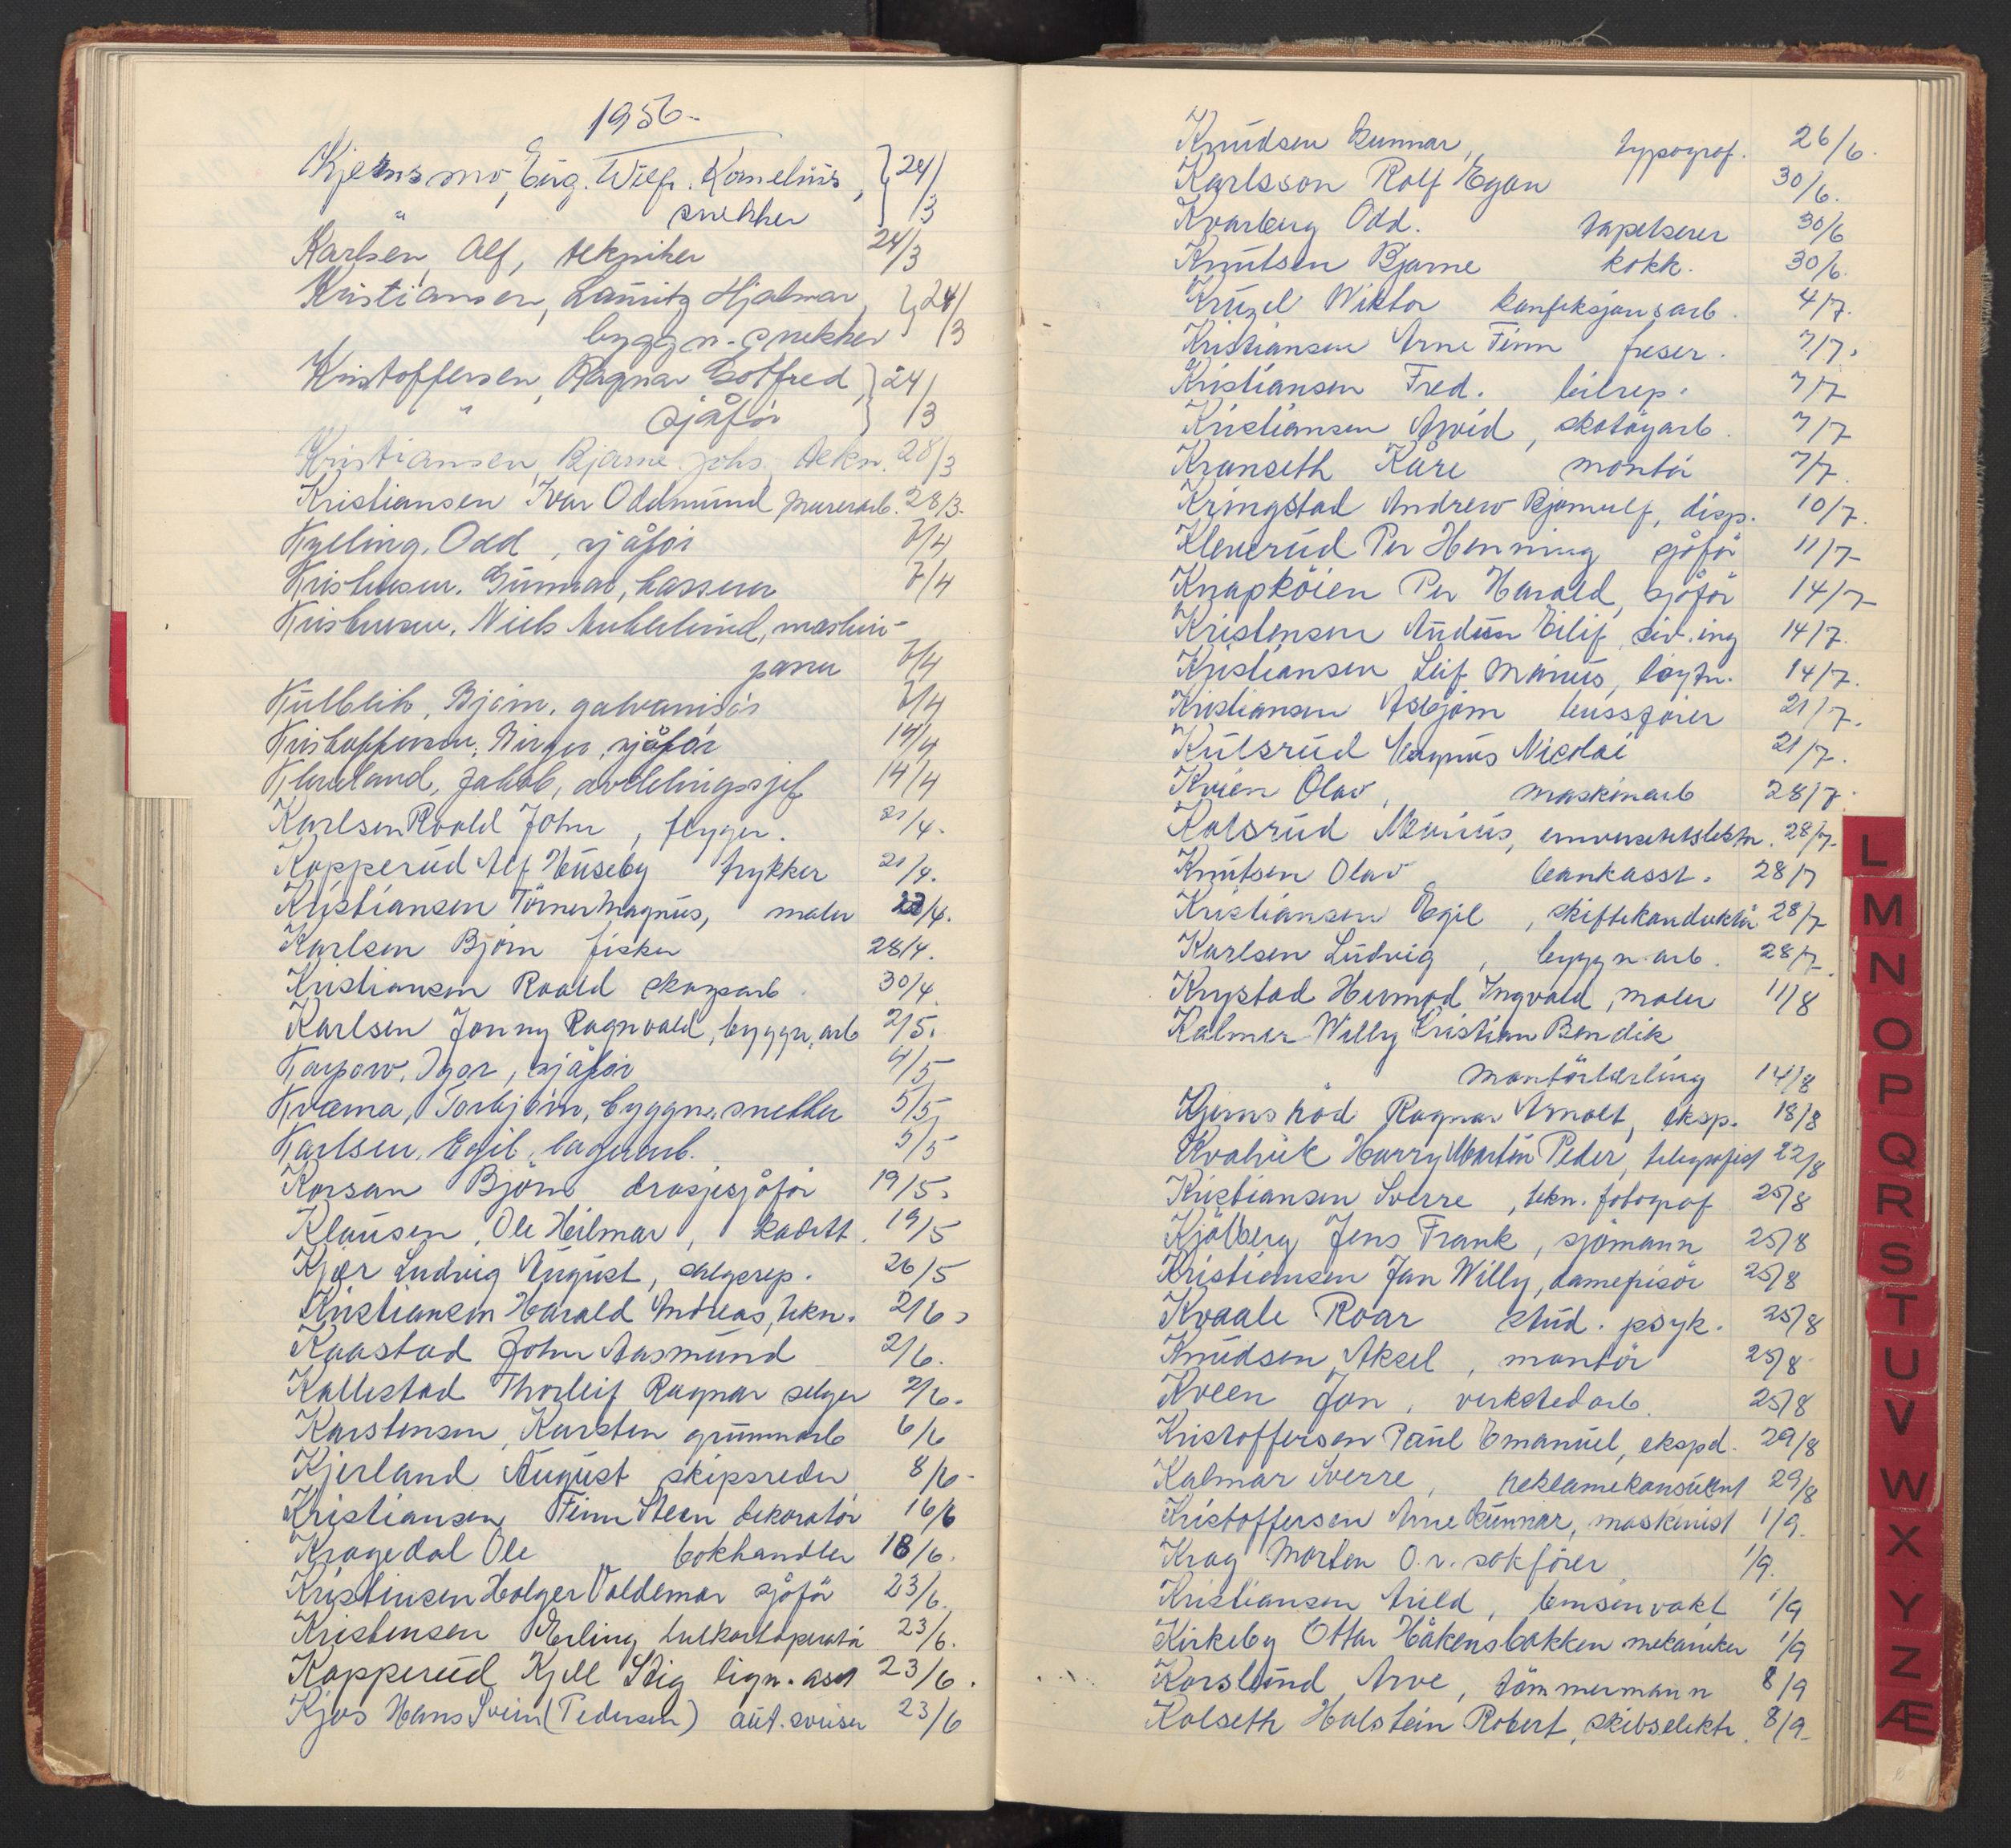 1956.-
Kjernsmo, Eug. Wilh. Kornelius, } 24/3
" snekker
Karlsen, Alf, tekniker 24/3
Kristiansen, Lauritz Hjalmar, } 24/3
byggn.-snekker
Kristoffersen, Ragnar Gotfred, } 24/3
" sjåför
Kristiansen, Bjarne Johs. tekn. 28/3
Kristiansen Ivar Oddmund murerarb. 28/3.
Kyling, Odd, sjåför 7/4
Kristensen, Gunnar, kasserer 7/4
Kristensen, Niels, maskin-
passer 7/4
Kulblik, Björn, galvanisör 7/4
Kristoffersen, Birger, sjåför 14/4
Kleveland, Jakob, avdelingssjef 14/4
Karlsen Roald John, flyger. 21/4.
Kopperud Alf Huseby trykker 21/4.
Kristiansen Törner Magnus, maler /4.
Karlsen Björn fisker 28/4.
Kristiansen Roald skogsarb. 30/4.
Karlsen Jonny Ragnvald, byggn. arb 2/5.
Karpow, Igor, sjåför 4/5
Kværna, Torbjörn, byggn. snekker 5/5
Karlsen, Egil, lagerarb. 5/5
Korsan Björn drosjesjåför 19/5.
Klausen, Ole Hilmar, kadett. 19/5
Kjær Ludvig August, salgsrep. 26/5
Kristiansen Harald Andreas, tekn. 2/6.
Kaastad John Aasmund 2/6.
Kallestad Thorleif Ragnar selger 2/6.
Karstensen, Karsten grunnarb 6/6
Kjerland August skipsreder 8/6-
Kristiansen, Finn Steen dekoratör 16/6
Kragedal Ole bokhandler 18/6.
Kristensen Holger Valdemar sjåför 23/6.
Kristensen Erling hulkortoperatör 23/6.
Kopperud Kjell Stig lign. asst 23/6.
Kjos Hans Svein (Pedersen) aut. sveiser 23/6
Knudsen Gunnar, typograf. 26/6.
Karlsson Rolf Egon 30/6.
Kvarberg Odd. tapetserer 30/6
Knutsen Bjarne kokk. 30/6.
Kruzel Wiktor konfeksjonsarb. 4/7.
Kristiansen Arne Finn freser. 7/7.
Kristiansen Fred. bilrep. 7/7
Kristiansen Arvid, skotöyarb. 7/7
Kranseth Kåre montör 7/7.
Kringstad Andrew Bjornulf, disp. 10/7.
Kleverud Per Henning sjåför 11/7-
Knapköien Per Harald, sjåför 14/7
Kristensen Audun Eilif, siv. ing 14/7.
Kristiansen Leif Marius, löytn. 14/7.
Kristiansen Asbjörn bussförer 21/7.
Kulsrud Magnus Nicolai 21/7.
Kvien Olav, maskinarb 28/7.
Kolsrud Marius, universitetslektor. 28/7.
Knutsen Olav bankasst. 28/7
Kristiansen Egil, skiftekonduktör 28/7
Karlsen Ludvig, byggn. arb. 28/7.
Krystad Hermod Ingvald, maler 11/8
Kalmer Willy Kristian Bendik
montörlærling 14/8
Kjernsröd Ragnar Arnolt, eksp. 18/8
Kvalvik Harry Martin Peder, telegrafist 22/8
Kristiansen Sverre, tekn. fotograf 25/8
Kjölberg Jens Frank, sjömann 25/8
Kristiansen Jan Willy, damefrisör 25/8
Kvaale Roar stud. psyk. 25/8
Knudsen, Aksel, montör 25/8
Kveen Jon, verkstedarb. 25/8
Kristoffersen Paul Emanuel, ekspd. 29/8
Kalmar Sverre, reklamekonsulent 29/8
Kristoffersen Arne Gunnar, maskinist 1/9.
Krag Morten O.r. sakförer 1/9.
Kristiansen Arild, bensinvakt 1/9
Kirkeby Ottar Håkensbakken mekaniker 1/9
Korslund Arve, tömmermann 8/9
Kolseth Halstein Robert, skibselektr. 8/9-
L
M
N
O
P
Q
R
S
T
U
V
W
X
Y
Z
Æ